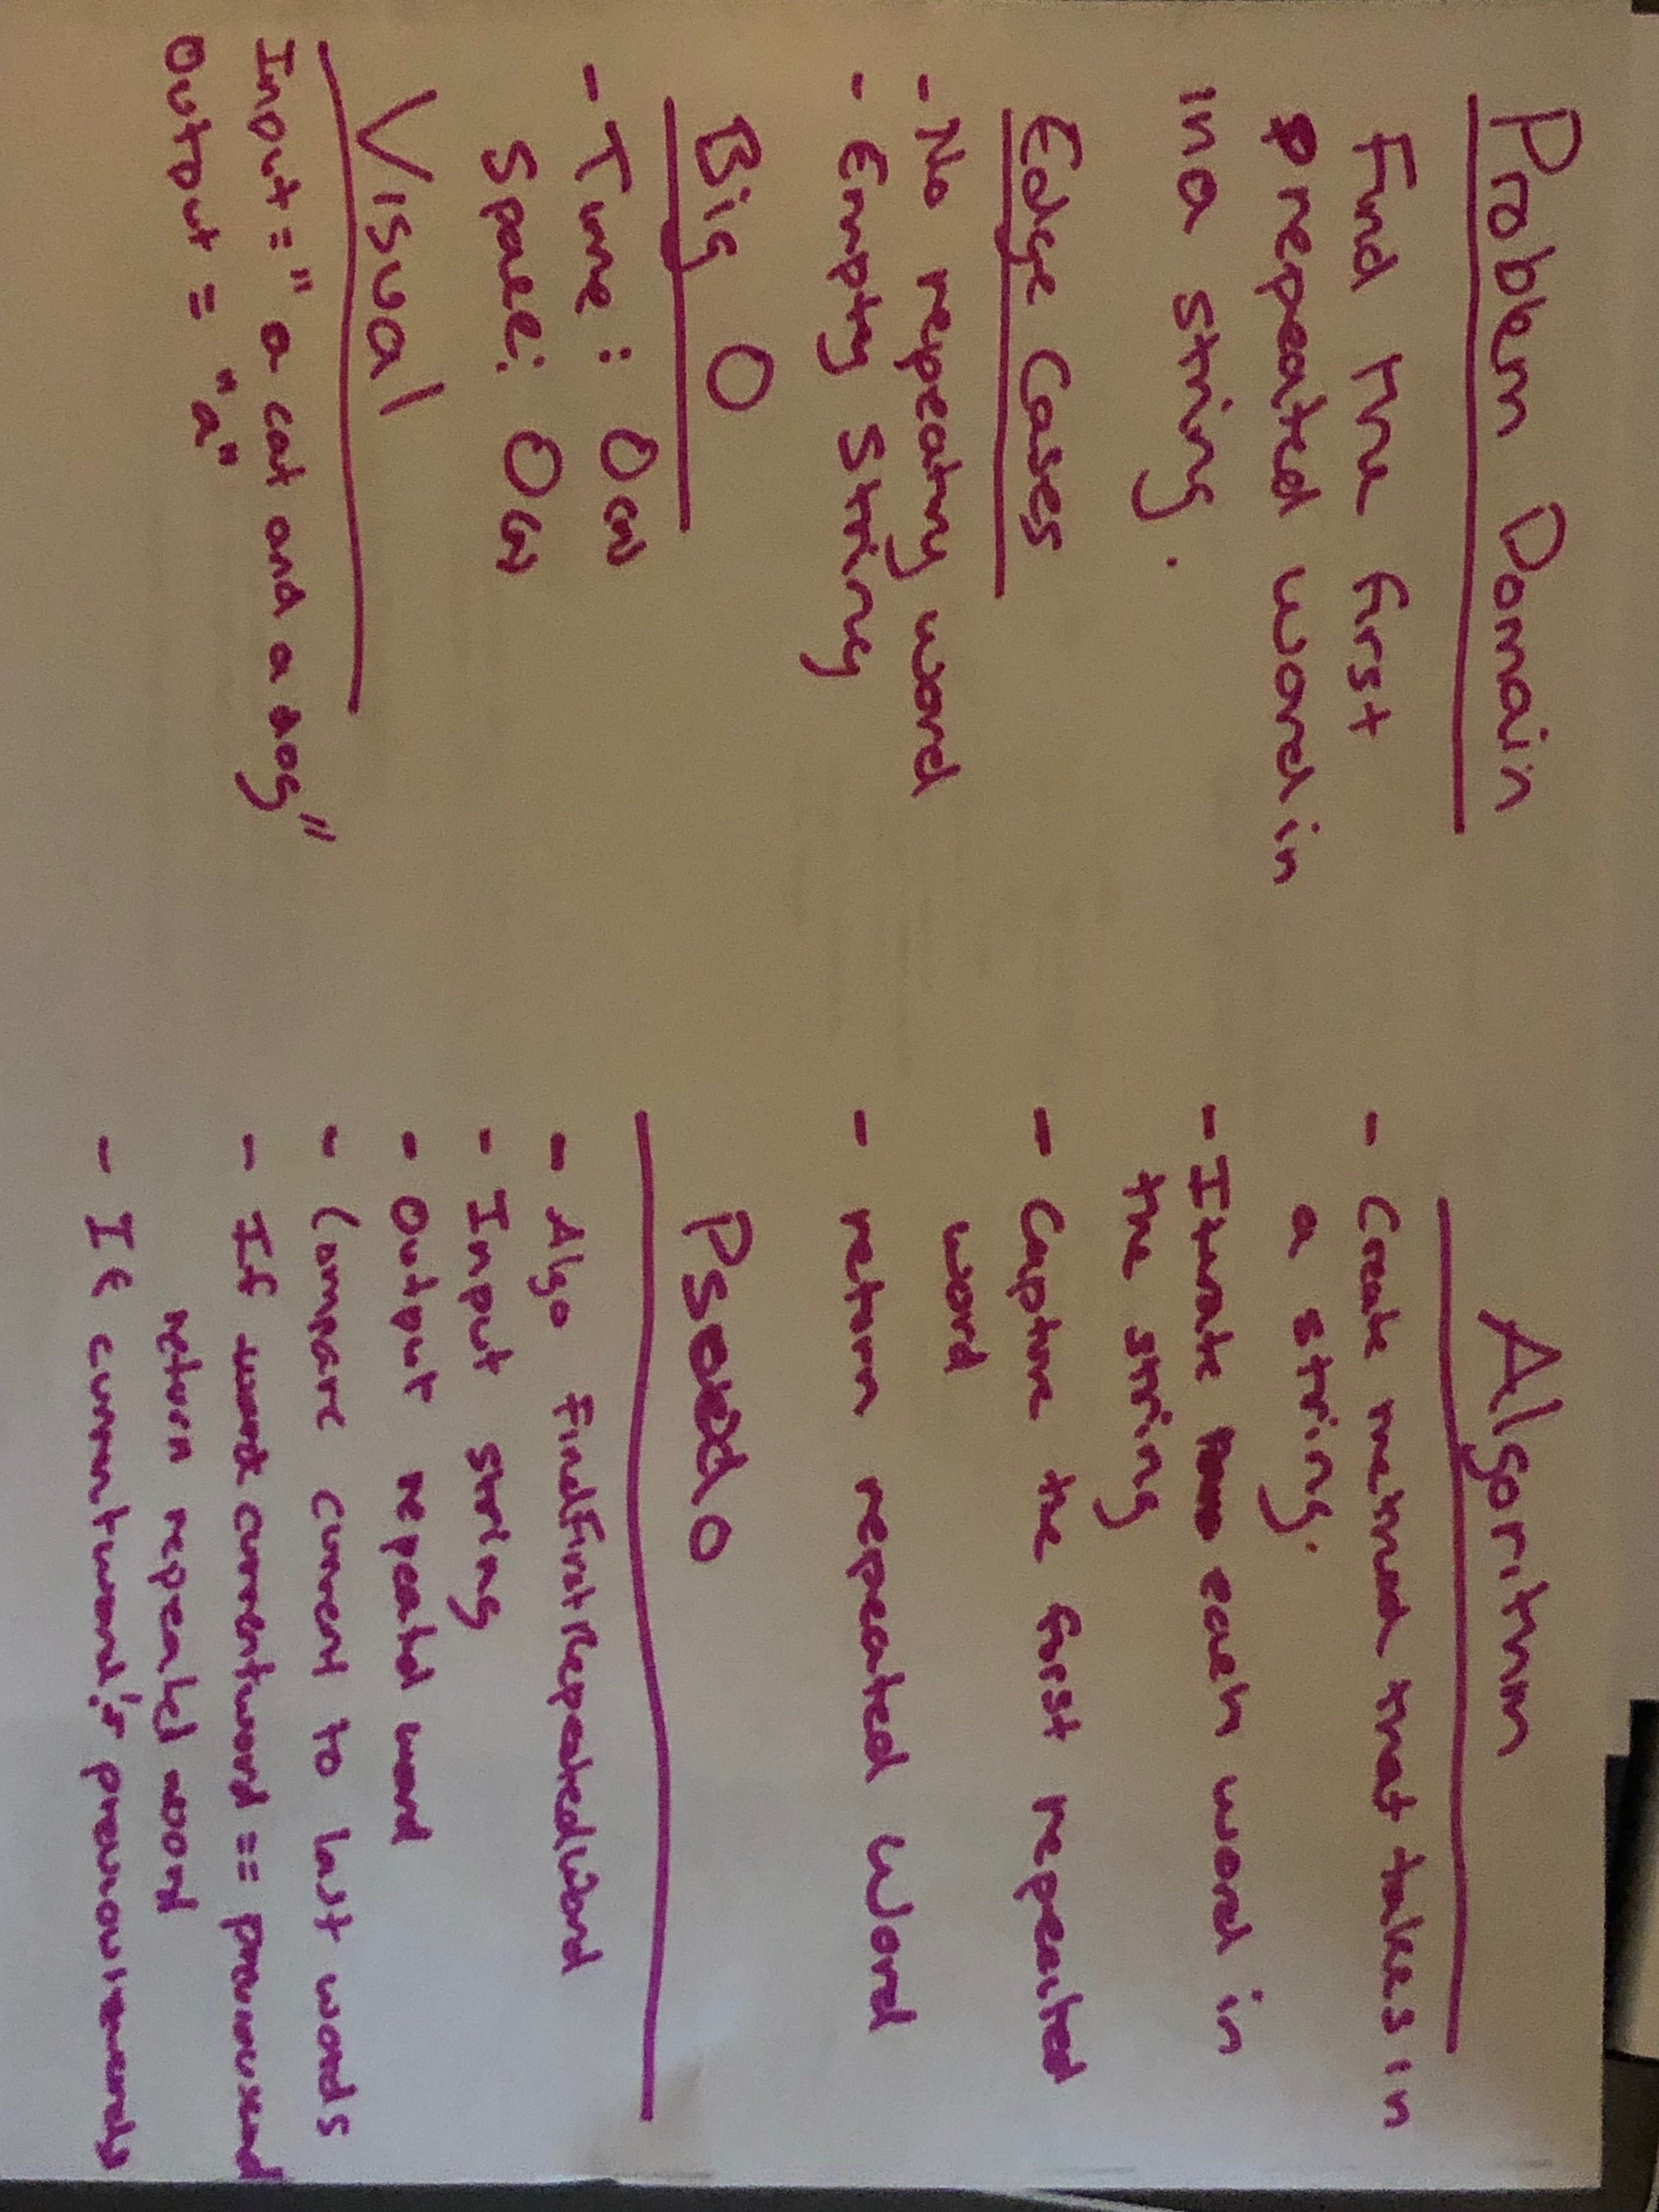 Problem Domain
Find the first
repeated word in
in a string.
Edge Cases
- No repeating word
- Empty String
Big O
- Time: O(n)
Space: O(n)
Visual
Input = "a cat and a dog"
Output = "a"
Algorithm
- Create method that takes in
a string.
- Iterate each word in
the string
- Capture the first repeated
word
- return repeated word
Pseudo
- Algo FindFirstRepeatedWord
- Input string
- Output repeated word
- Compare current to last words
- If currentword ==
return repeated word
- If current